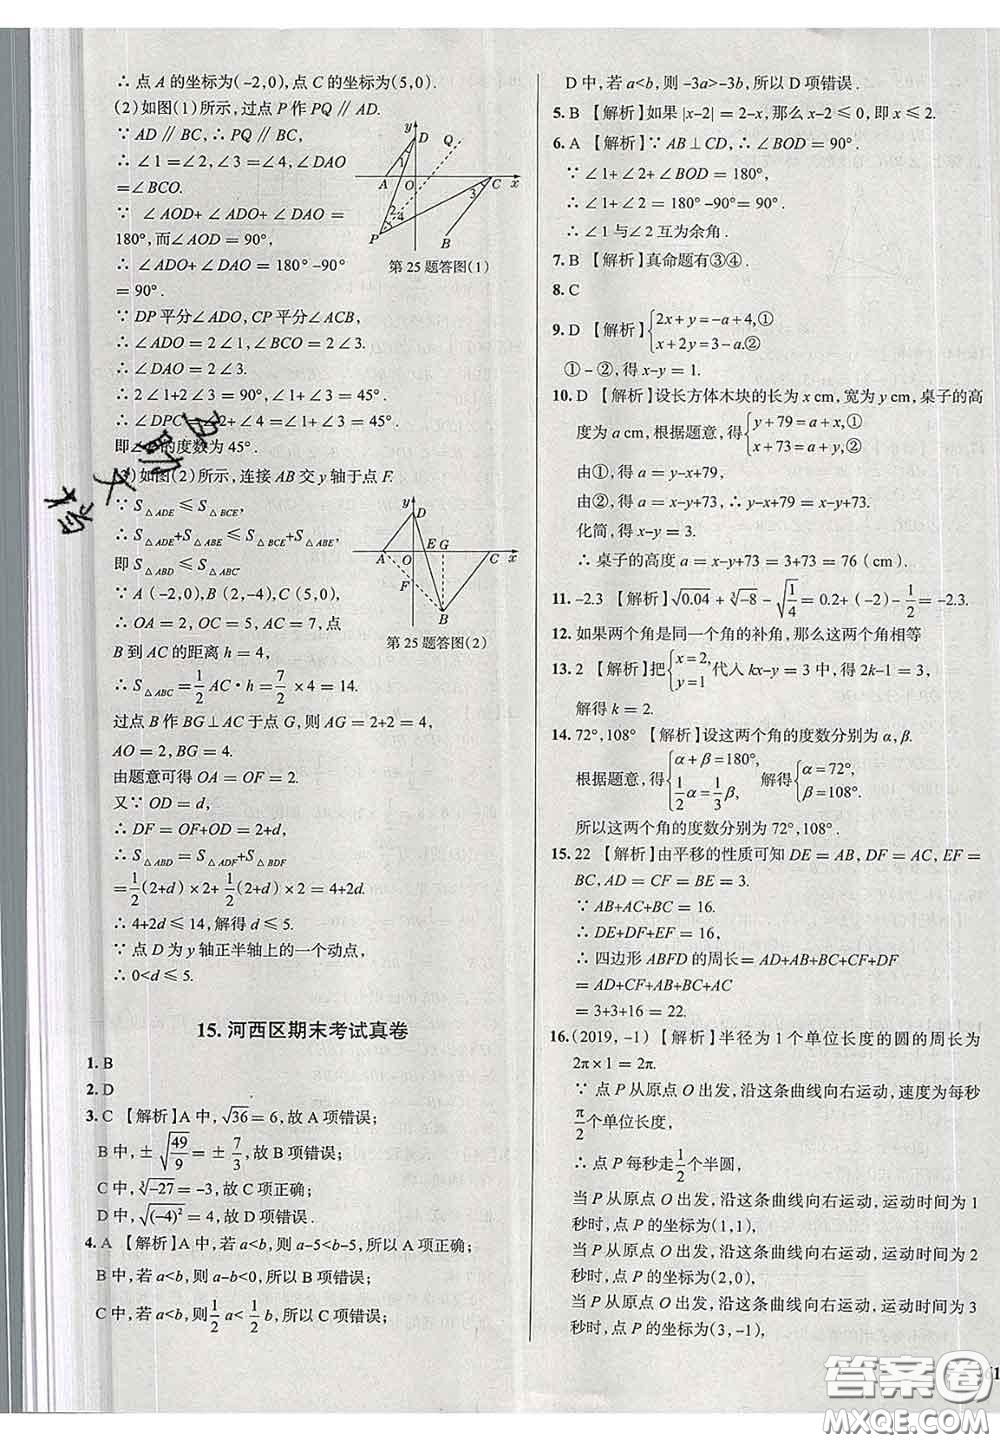 ∴ 点 A 的坐标为(-2,0),点 C 的坐标为(5,0).
(2)如图(1)所示,过点 P 作 PQ∥AD.
∵ AD∥BC,∴ PQ∥BC.
∴ ∠1=∠2,∠3=∠4,∠DAO
=∠BCO.
∵ ∠AOD+∠ADO+∠DAO=
180°,而∠AOD=90°,
∴ ∠ADO+∠DAO=180°-90°
=90°.
∵ DP 平分∠ADO,CP 平分∠ACB,
∴ ∠ADO=2∠1,∠BCO=2∠3.
∴ ∠DAO=2∠3.
∴ 2∠1+2∠3=90°.
∴ ∠1+∠3=45°.
∴ ∠DPC=∠2+∠4=∠1+∠3=45°.
即∠ 的度数为 45°.
y D Q 1 A O C x 3 2 4 P B
第 25 题答图(1)
(3)如图(2)所示,连接 AB 交 y 轴于点 F.
∵ S△ADE≤S△BCE,
∴ S△ADE+S△ABE≤S△BCE+S△ABE,
即 S△ABD≤S△ABC.
∵ A(-2,0),B(2,-4),C(5,0),
∴ OA=2,OC=5,∴ AC=7,点
B 到 AC 的距离 h=4,
∴ S△ABC=1/2 AC·h=7/2×4=14.
y D E G A O C x F B
第 25 题答图(2)
过点 B 作 BG⊥AC 于点 G,则 AG=2+2=4,
AO=2,BG=4.
由题意可得 OA=OF=2.
又∵ OD=d,
∴ DF=OF+OD=2+d,
∴ S△ABD=S△ADF+S△BDF
=1/2(2+d)×2+1/2(2+d)×2=4+2d.
∴ 4+2d≤14,解得 d≤5.
∵ 点 D 为 y 轴正半轴上的一个动点,
∴ 0<d≤5.
15. 河西区期末考试真卷
1. B
2. D
3. C 【解析】A 中,√36=6,故 A 项错误;
B 中,±√(49/9)=±7/3,故 B 项错误;
C 中,∛-27=-3,故 C 项正确;
D 中,√(-4)²=4,故 D 项错误.
4. A 【解析】A 中,若 a<b,则 a-5<b-5,所以 A 项正确;
B 中,若 a<b,则 a-b<0,所以 B 项错误;
C 中,若 a<b,则 1/2 a<1/2 b,所以 C 项错误;
D 中,若 a<b,则 -3a>-3b,所以 D 项错误.
5. B 【解析】如果 |x-2|=2-x,那么 x-2≤0,即 x≤2.
6. A 【解析】∵ AB⊥CD,∴ ∠BOD=90°.
∵ ∠1+∠2+∠BOD=180°,
∴ ∠1+∠2=180°-90°=90°.
∴ ∠1 与∠2 互为余角.
7. B 【解析】真命题有③④.
8. C
9. D 【解析】{2x+y=-a+4,① x+2y=3-a.②
①-②,得 x-y=1.
10. D 【解析】设长方体木块的长为 x cm,宽为 y cm,桌子的高
度为 a cm,根据题意,得{y+79=a+x,① x+73=a+y,②
由①,得 a=y-x+79,
由②,得 a=x-y+73,∴ x-y+73=y-x+79.
化简,得 x-y=3.
∴ 桌子的高度 a=x-y+73=3+73=76(cm).
11. -2.3 【解析】√0.04+∛-8-√(1/4)=0.2+(-2)-1/2=-2.3.
12. 如果两个角是同一个角的补角,那么这两个角相等
13. 2 【解析】把{x=2, y=1代入 kx-y=3 中,得 2k-1=3,
解得 k=2.
14. 72°,108° 【解析】设这两个角的度数分别为 α,β.
根据题意,得{α+β=180°, 1/2 α=1/3 β, 解得{α=72°, β=108°.
所以这两个角的度数分别为 72°,108°.
15. 22 【解析】由平移的性质可知 DE=AB,DF=AC,EF=
BC,AD=CF=BE=3.
∵ AB+AC+BC=16,
∴ DE+DF+EF=16,
∴ 四边形 ABFD 的周长=AD+AB+BE+EF+DF=
AD+CF+AB+BC+AC
=3+3+16=22.
16. (2019,-1) 【解析】半径为 1 个单位长度的圆的周长为
2π×1=2π.
∵ 点 P 从原点 O 出发,沿这条曲线向右运动,速度为每秒
π/2 个单位长度,
∴ 点 P 每秒走 1/2 个半圆,
当 P 从原点 O 出发,沿这条曲线向右运动,运动时间为 1
秒时,点 P 的坐标为(1,1),
当 P 从原点 O 出发,沿这条曲线向右运动,运动时间为 2
秒时,点 P 的坐标为(2,0),
当 P 从原点 O 出发,沿这条曲线向右运动,运动时间为 3
秒时,点 P 的坐标为(3,-1),
答案卷
MXQE.COM